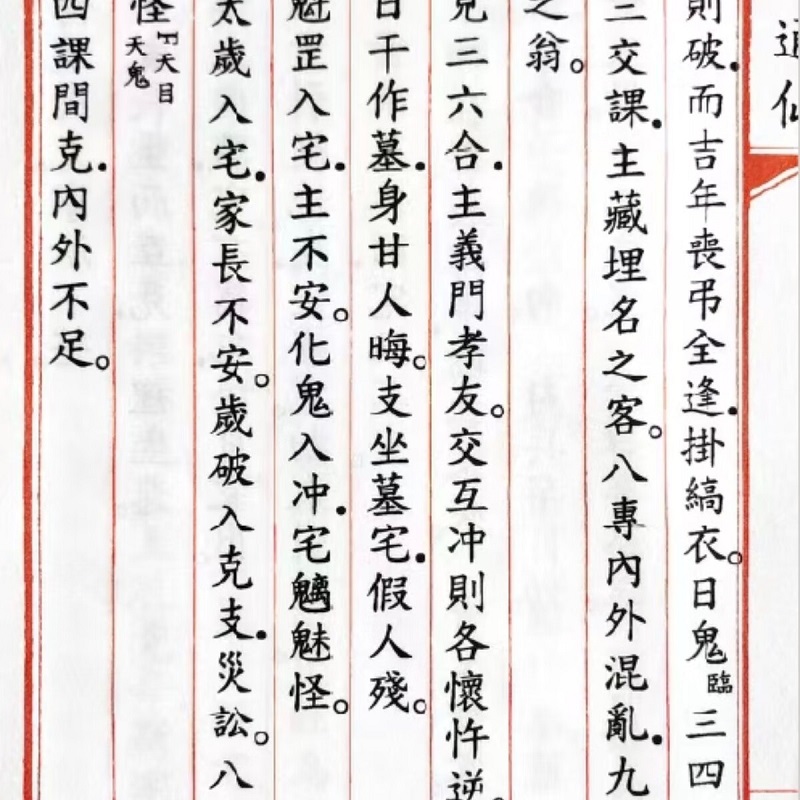 則破.而吉年喪弔全逢.掛縞衣。日鬼臨三四
三交課.主藏埋名之客。八專內外混亂.九
之翁。
見三六合.主義門孝友。交互冲則各懷忤逆。
日干作墓.身甘人晦。支坐墓宅.假人殘。
魁罡入宅.主不安。化鬼入冲.宅魑魅怪。
太歲入宅.家長不安。歲破入克支.災訟。八
怪天目天鬼
四課間克.內外不足。